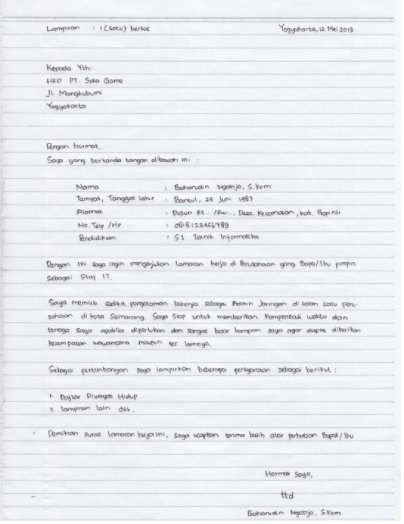 Lampiran : 1 (satu) berkas Yogyakarta, 12 Mei 2013
Kepada Yth.
HRD PT. Suka Game
Jl. Mangkubumi
Yogyakarta
Dengan hormat,
Saya yang bertanda tangan dibawah ini :
Nama : Baharudin Ngatijo, S.Kom
Tempat, Tanggal Lahir : Bantul, 25 Juni 1987
Alamat : Dusun Rt.. /Rw.., Desa, Kecamatan, Kab, Propinsi
No. Telp /Hp : 08181234
Pendidikan : S1 Teknik Informatika
Dengan ini saya ingin mengajukan lamaran kerja di Perusahaan yang Bapak/Ibu pimpin
sebagai Staf IT.
Saya memiliki sedikit pengalaman bekerja sebagai Admin Jaringan di salah satu peru-
sahaan di kota Semarang. Saya siap untuk memberikan kompensasi waktu dan
tenaga saya apabila diperlukan dan sangat besar harapan saya agar dapat diberikan
kesempatan wawancara maupun tes lainnya.
Sebagai pertimbangan saya lampirkan beberapa persyaratan sebagai berikut :
1. Daftar Riwayat Hidup
2. lampiran lain dst.
Demikian surat lamaran kerja ini, saya ucapkan terima kasih atas perhatian Bapak/Ibu
Hormat Saya,
ttd
Baharudin Ngatijo, S.Kom